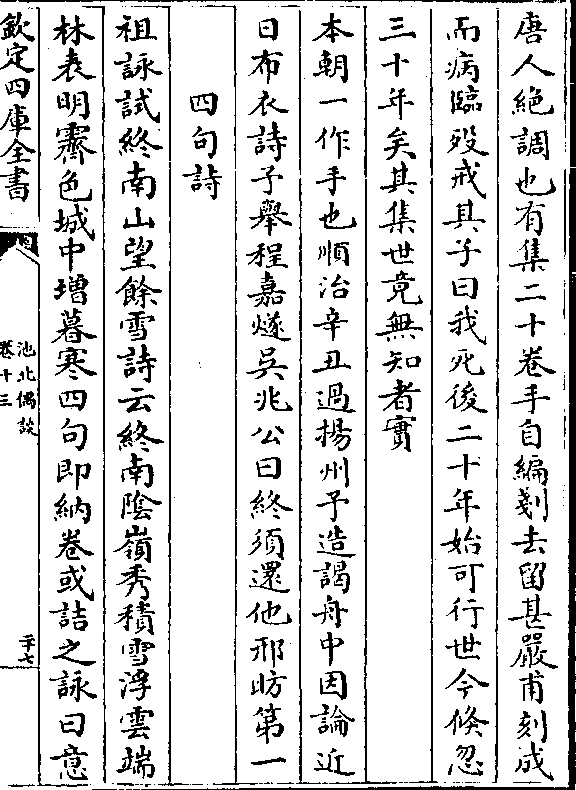 唐人絶調也有集二十卷手自編剗去留甚嚴甫刻成
而病臨殁戒其子曰我死後二十年始可行世今倐忽
三十年矣其集世竟無知者實
本朝一作手也順治辛丑過揚州予造謁舟中因論近
日布衣詩予舉程嘉燧吳兆公曰終須還他邢昉第一
四句詩
祖詠試終南山望餘雪詩云終南陰嶺秀積雪浮雲端
林表明霽色城中增暮寒四句即納卷或詰之詠曰意
欽定四庫全書
池北偶談
卷十三
二十七